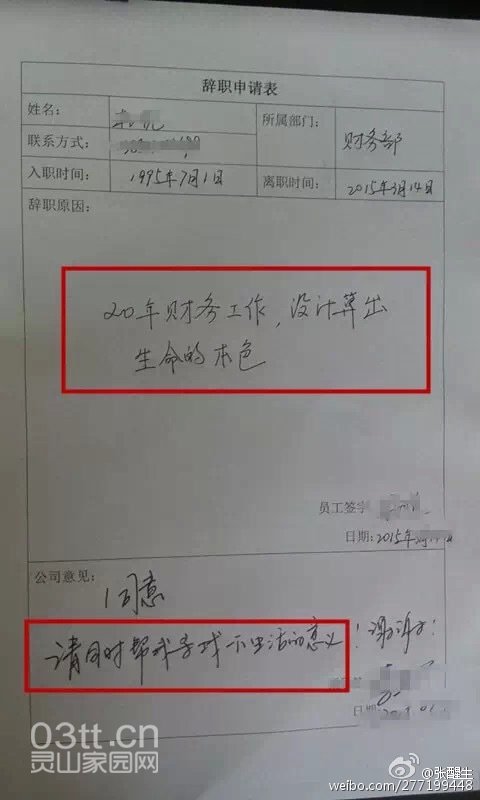 辞职申请表
姓名：
所属部门：
财务部
联系方式：
入职时间：
1995年7月1日
离职时间：
2015年3月14日
辞职原因：
20年财务工作，没计算出
生命的本色
员工签字
日期：2015年
公司意见：
同意
请同时帮我寻找一下生活的意义！谢谢！
日期：
03tt.cn
灵山家园网
@张醒生
weibo.com/277199448